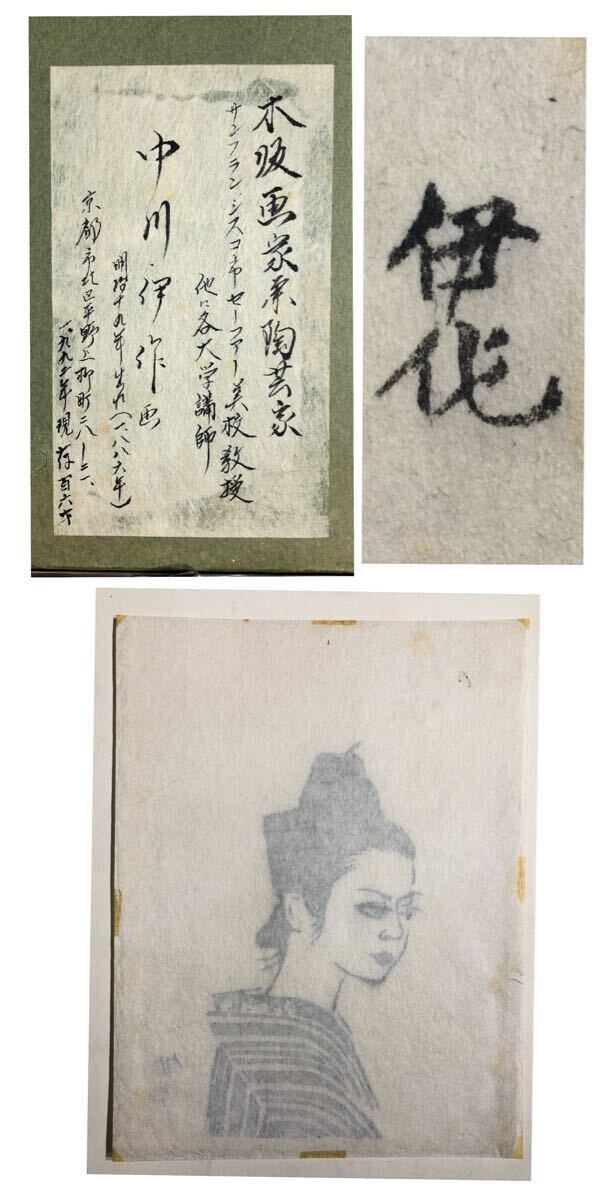 木版画家兼陶芸家
サンフランシスコ市セーファー美校教授
他に各大学講師
中川伊作画
明治十九年生れ(一八八六年)
京都市北区平野上柳町二八ー二一、
一九九二年現存百六才
伊作
伊作